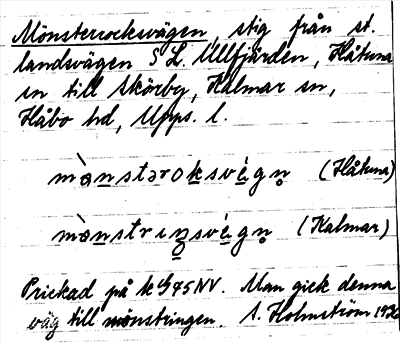 Mönsterrocksvägen, stig från st.
landsvägen S L. Ullfjärden, Håtuna
sn till Skörby, Kalmar sn,
Håbo hd, Upps. l.
mø̀nstəroksvégn̥ (Håtuna)
mø̀nstrıŋsvégn̥ (Kalmar)
Prickad på k. Man gick denna
väg till mönstringen. Holmström